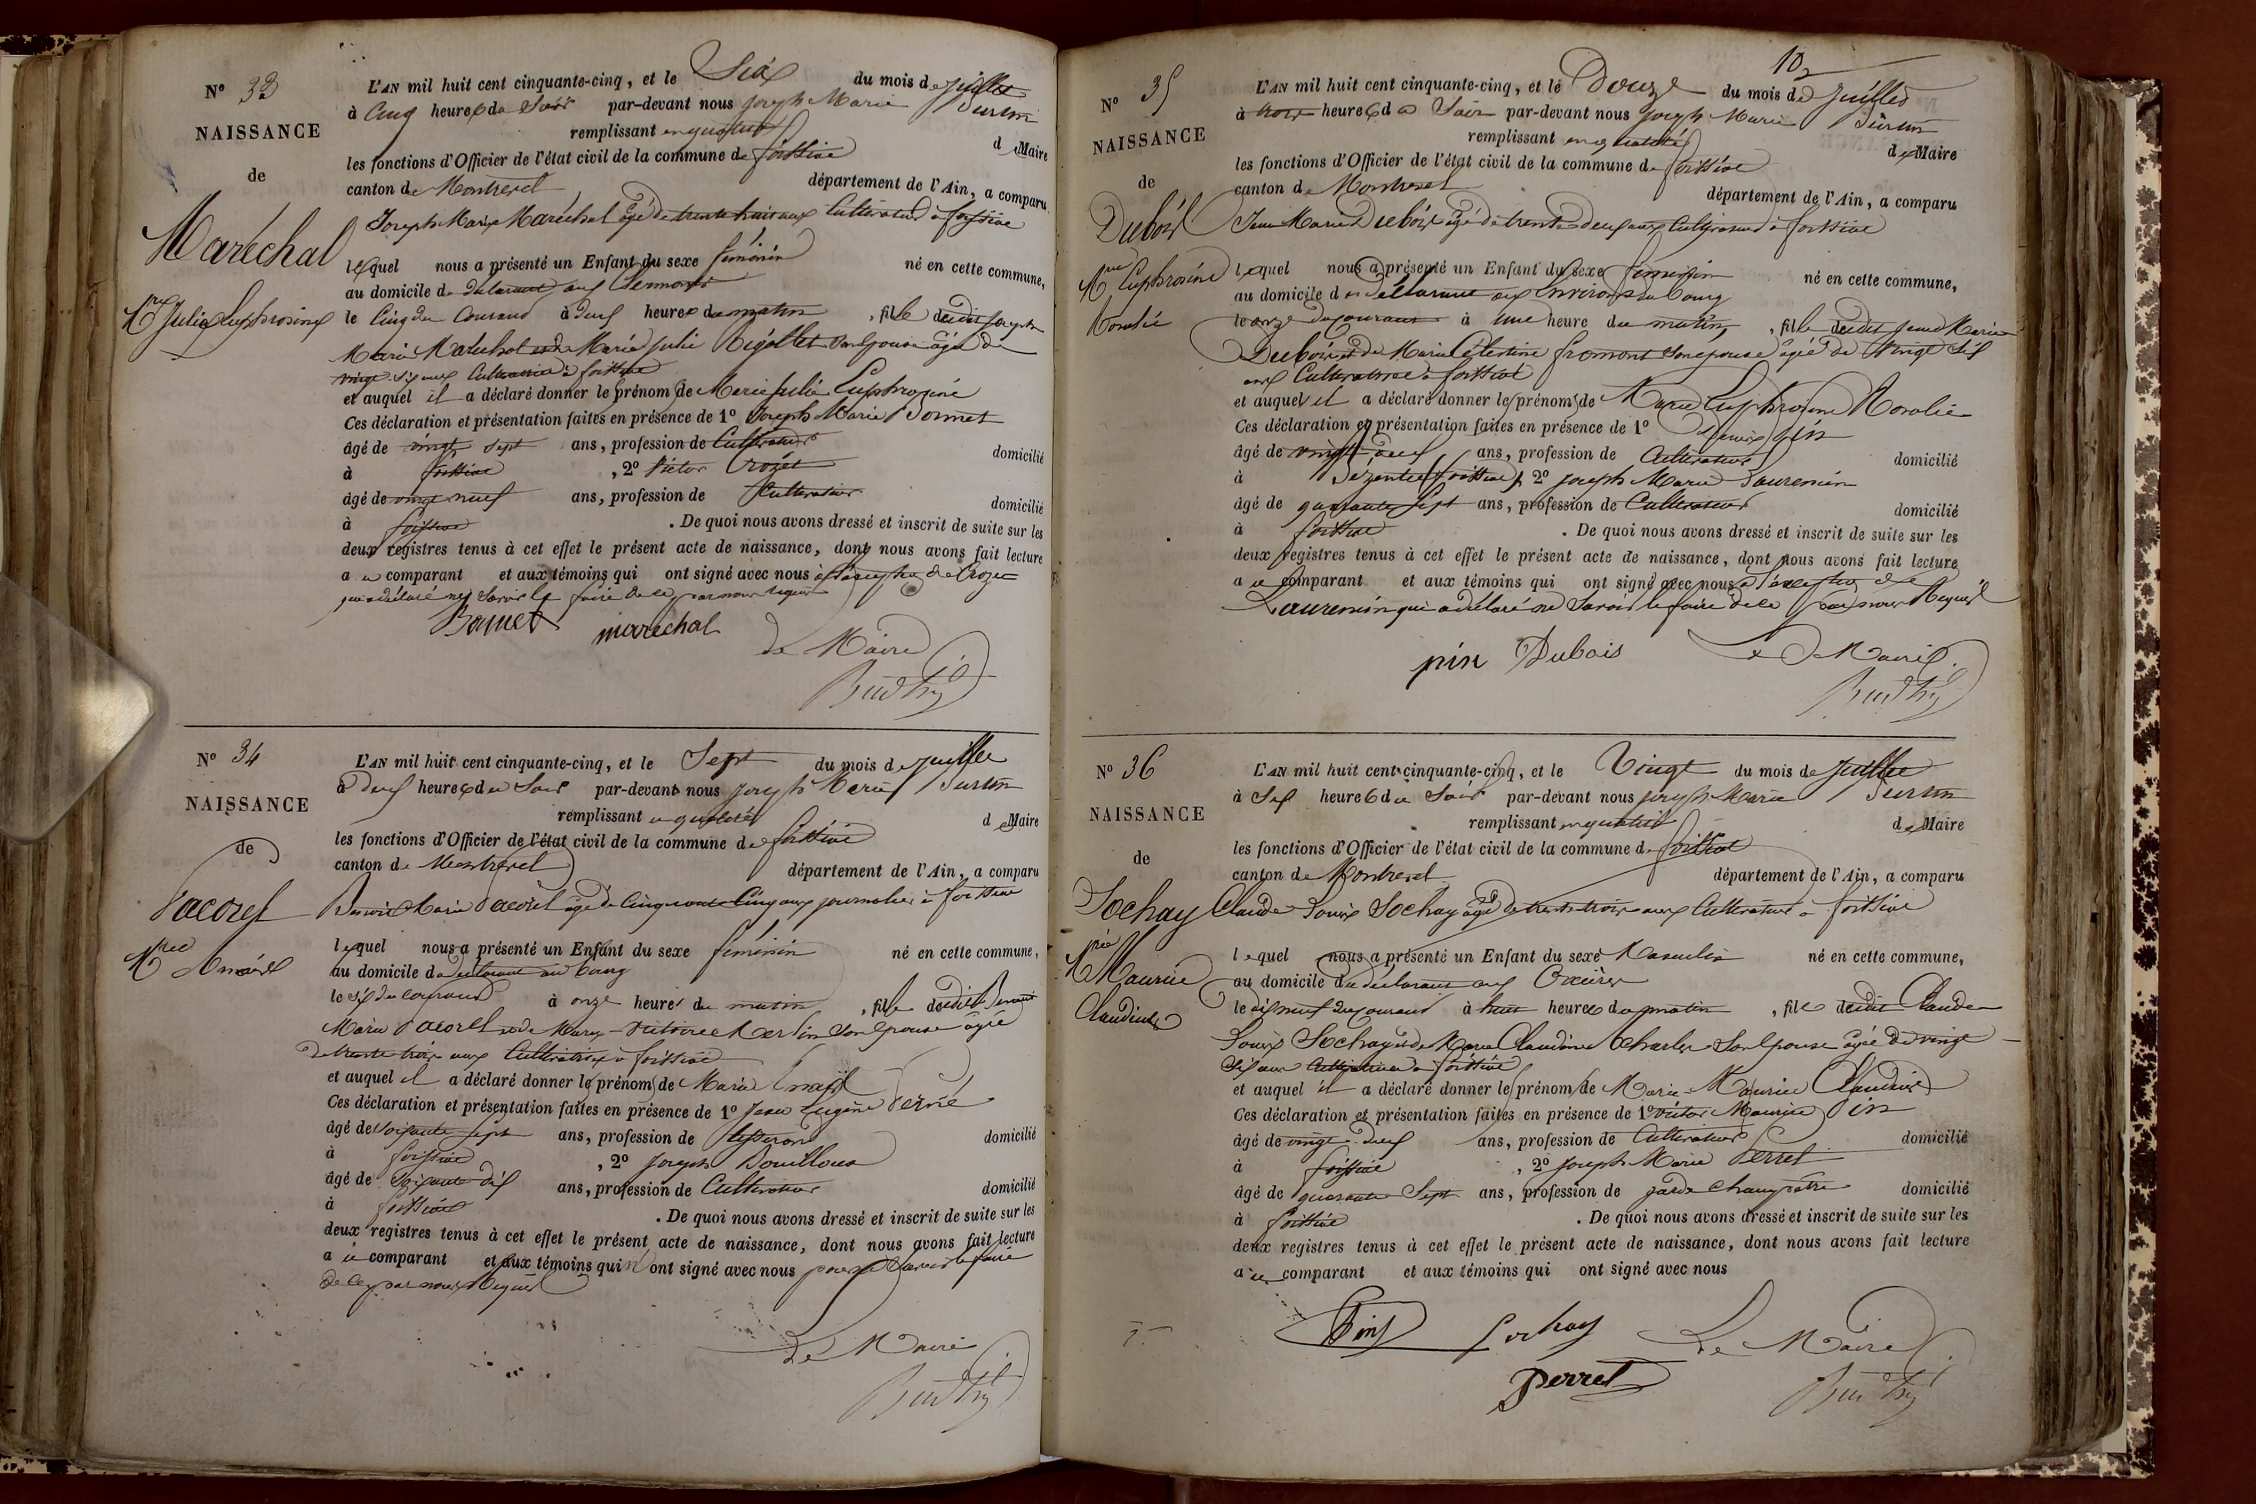 N° 33
NAISSANCE
de
Maréchal
Mie Julie Euphrosine
L'AN mil huit cent cinquante-cinq, et le Six du mois de juillet
à Cinq heures du Soir par-devant nous Joseph Marie
remplissant en qualité de Maire
les fonctions d'Officier de l'état civil de la commune de foissiat
canton de Montrevel département de l'Ain, a comparu
Joseph Marie Maréchal âgé de trente huit ans Cultivateur à foissiat
lequel nous a présenté un Enfant du sexe féminin né en cette commune,
au domicile du déclarant aux
le Cinq du Courant à deux heures du matin, fille dudit Joseph
Marie Maréchal et de Marie Julie Son Epouse âgée de
vingt six ans Cultivatrice à foissiat
et auquel il a déclaré donner le prénom de Marie Julie Euphrosine
Ces déclaration et présentation faites en présence de 1° Joseph Marie Bonnet
âgé de vingt sept ans, profession de Cultivateur domicilié
à foissiat, 2° Victor Crozet
âgé de vingt neuf ans, profession de Cultivateur domicilié
à foissiat. De quoi nous avons dressé et inscrit de suite sur les
deux registres tenus à cet effet le présent acte de naissance, dont nous avons fait lecture
a u comparant et aux témoins qui ont signé avec nous à l'exception de Crozet
qui a déclaré ne Savoir le faire de ce par nous requis
Bonnet maréchal Le Maire
N° 34
NAISSANCE
de
Pacoret
Mie
L'AN mil huit cent cinquante-cinq, et le Sept du mois de juillet
à Deux heures du Soir par-devant nous Joseph Marie
remplissant en qualité de Maire
les fonctions d'Officier de l'état civil de la commune de foissiat
canton de Montrevel département de l'Ain, a comparu
Benoit Marie Pacoret âgé de Cinquante Cinq ans journalier à foissiat
lequel nous a présenté un Enfant du sexe féminin né en cette commune,
au domicile du déclarant au bourg
le Six du courant à onze heures du matin, fille dudit Benoit
Marie Pacoret et de Marie Victoire Son Epouse âgée
de trente trois ans Cultivatrice à foissiat
et auquel il a déclaré donner le prénom de Marie
Ces déclaration et présentation faites en présence de 1° Jean Eugène
âgé de Soixante Sept ans, profession de domicilié
à foissiat, 2° Joseph Bouilloux
âgé de Soixante dix ans, profession de Cultivateur domicilié
à foissiat. De quoi nous avons dressé et inscrit de suite sur les
deux registres tenus à cet effet le présent acte de naissance, dont nous avons fait lecture
a u comparant et aux témoins qui n'ont signé avec nous pour ne Savoir le faire
de ce par nous Requis
Le Maire
10
N° 35
NAISSANCE
de
Dubois
Mie Euphrosine
Rosalie
L'AN mil huit cent cinquante-cinq, et le Douze du mois de juillet
à trois heures du Soir par-devant nous Joseph Marie
remplissant en qualité de Maire
les fonctions d'Officier de l'état civil de la commune de foissiat
canton de Montrevel département de l'Ain, a comparu
Jean Marie Dubois âgé de trente deux ans Cultivateur à foissiat
lequel nous a présenté un Enfant du sexe féminin né en cette commune,
au domicile du déclarant aux Environs du bourg
le onze du courant à une heure du matin, fille dudit Jean Marie
Dubois et de Marie Célestine fromont Son epouse âgée de Vingt Six
ans Cultivatrice à foissiat
et auquel il a déclaré donner le prénom de Marie Euphrosine Rosalie
Ces déclaration et présentation faites en présence de 1° pin
âgé de vingt deux ans, profession de Cultivateur domicilié
à foissiat, 2° Joseph Marie Laurencin
âgé de quarante Sept ans, profession de Cultivateur domicilié
à foissiat. De quoi nous avons dressé et inscrit de suite sur les
deux registres tenus à cet effet le présent acte de naissance, dont nous avons fait lecture
a u comparant et aux témoins qui ont signé avec nous à l'exception de
Laurencin qui a déclaré ne Savoir le faire de ce par nous Requis
pin Dubois Le Maire
N° 36
NAISSANCE
de
Sochay
Mie Maurice
Claudius
L'AN mil huit cent cinquante-cinq, et le Vingt du mois de juillet
à Six heures du Soir par-devant nous Joseph Marie
remplissant en qualité de Maire
les fonctions d'Officier de l'état civil de la commune de foissiat
canton de Montrevel département de l'Ain, a comparu
Claude Louis Sochay âgé de trente trois ans Cultivateur à foissiat
lequel nous a présenté un Enfant du sexe Masculin né en cette commune,
au domicile du déclarant aux
le dix neuf du courant à huit heures du matin, fils dudit Claude
Louis Sochay et de Marie Claudine Charles Son Epouse âgée de vingt
Six ans Cultivatrice à foissiat
et auquel il a déclaré donner le prénom de Marie Maurice
Ces déclaration et présentation faites en présence de 1° Victor Maurice Pin
âgé de vingt deux ans, profession de Cultivateur domicilié
à foissiat, 2° Joseph Marie Perret
âgé de quarante Sept ans, profession de garde Champêtre domicilié
à foissiat. De quoi nous avons dressé et inscrit de suite sur les
deux registres tenus à cet effet le présent acte de naissance, dont nous avons fait lecture
a u comparant et aux témoins qui ont signé avec nous
Pin Sochay Le Maire
Perret